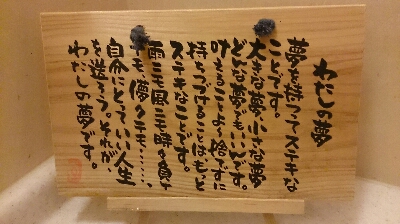 わたしの夢
夢を持つってステキな
ことです。
大きな夢小さな夢
どんな夢でもいいんです。
叶えることより捨てずに
持ちつづけることはもっと
ステキなことです。
雨ニモ風ニモ時々負ケ
テモ、儚クテモ……、
自分にとっていい人生
を送ろう。それが、
わたしの夢です。